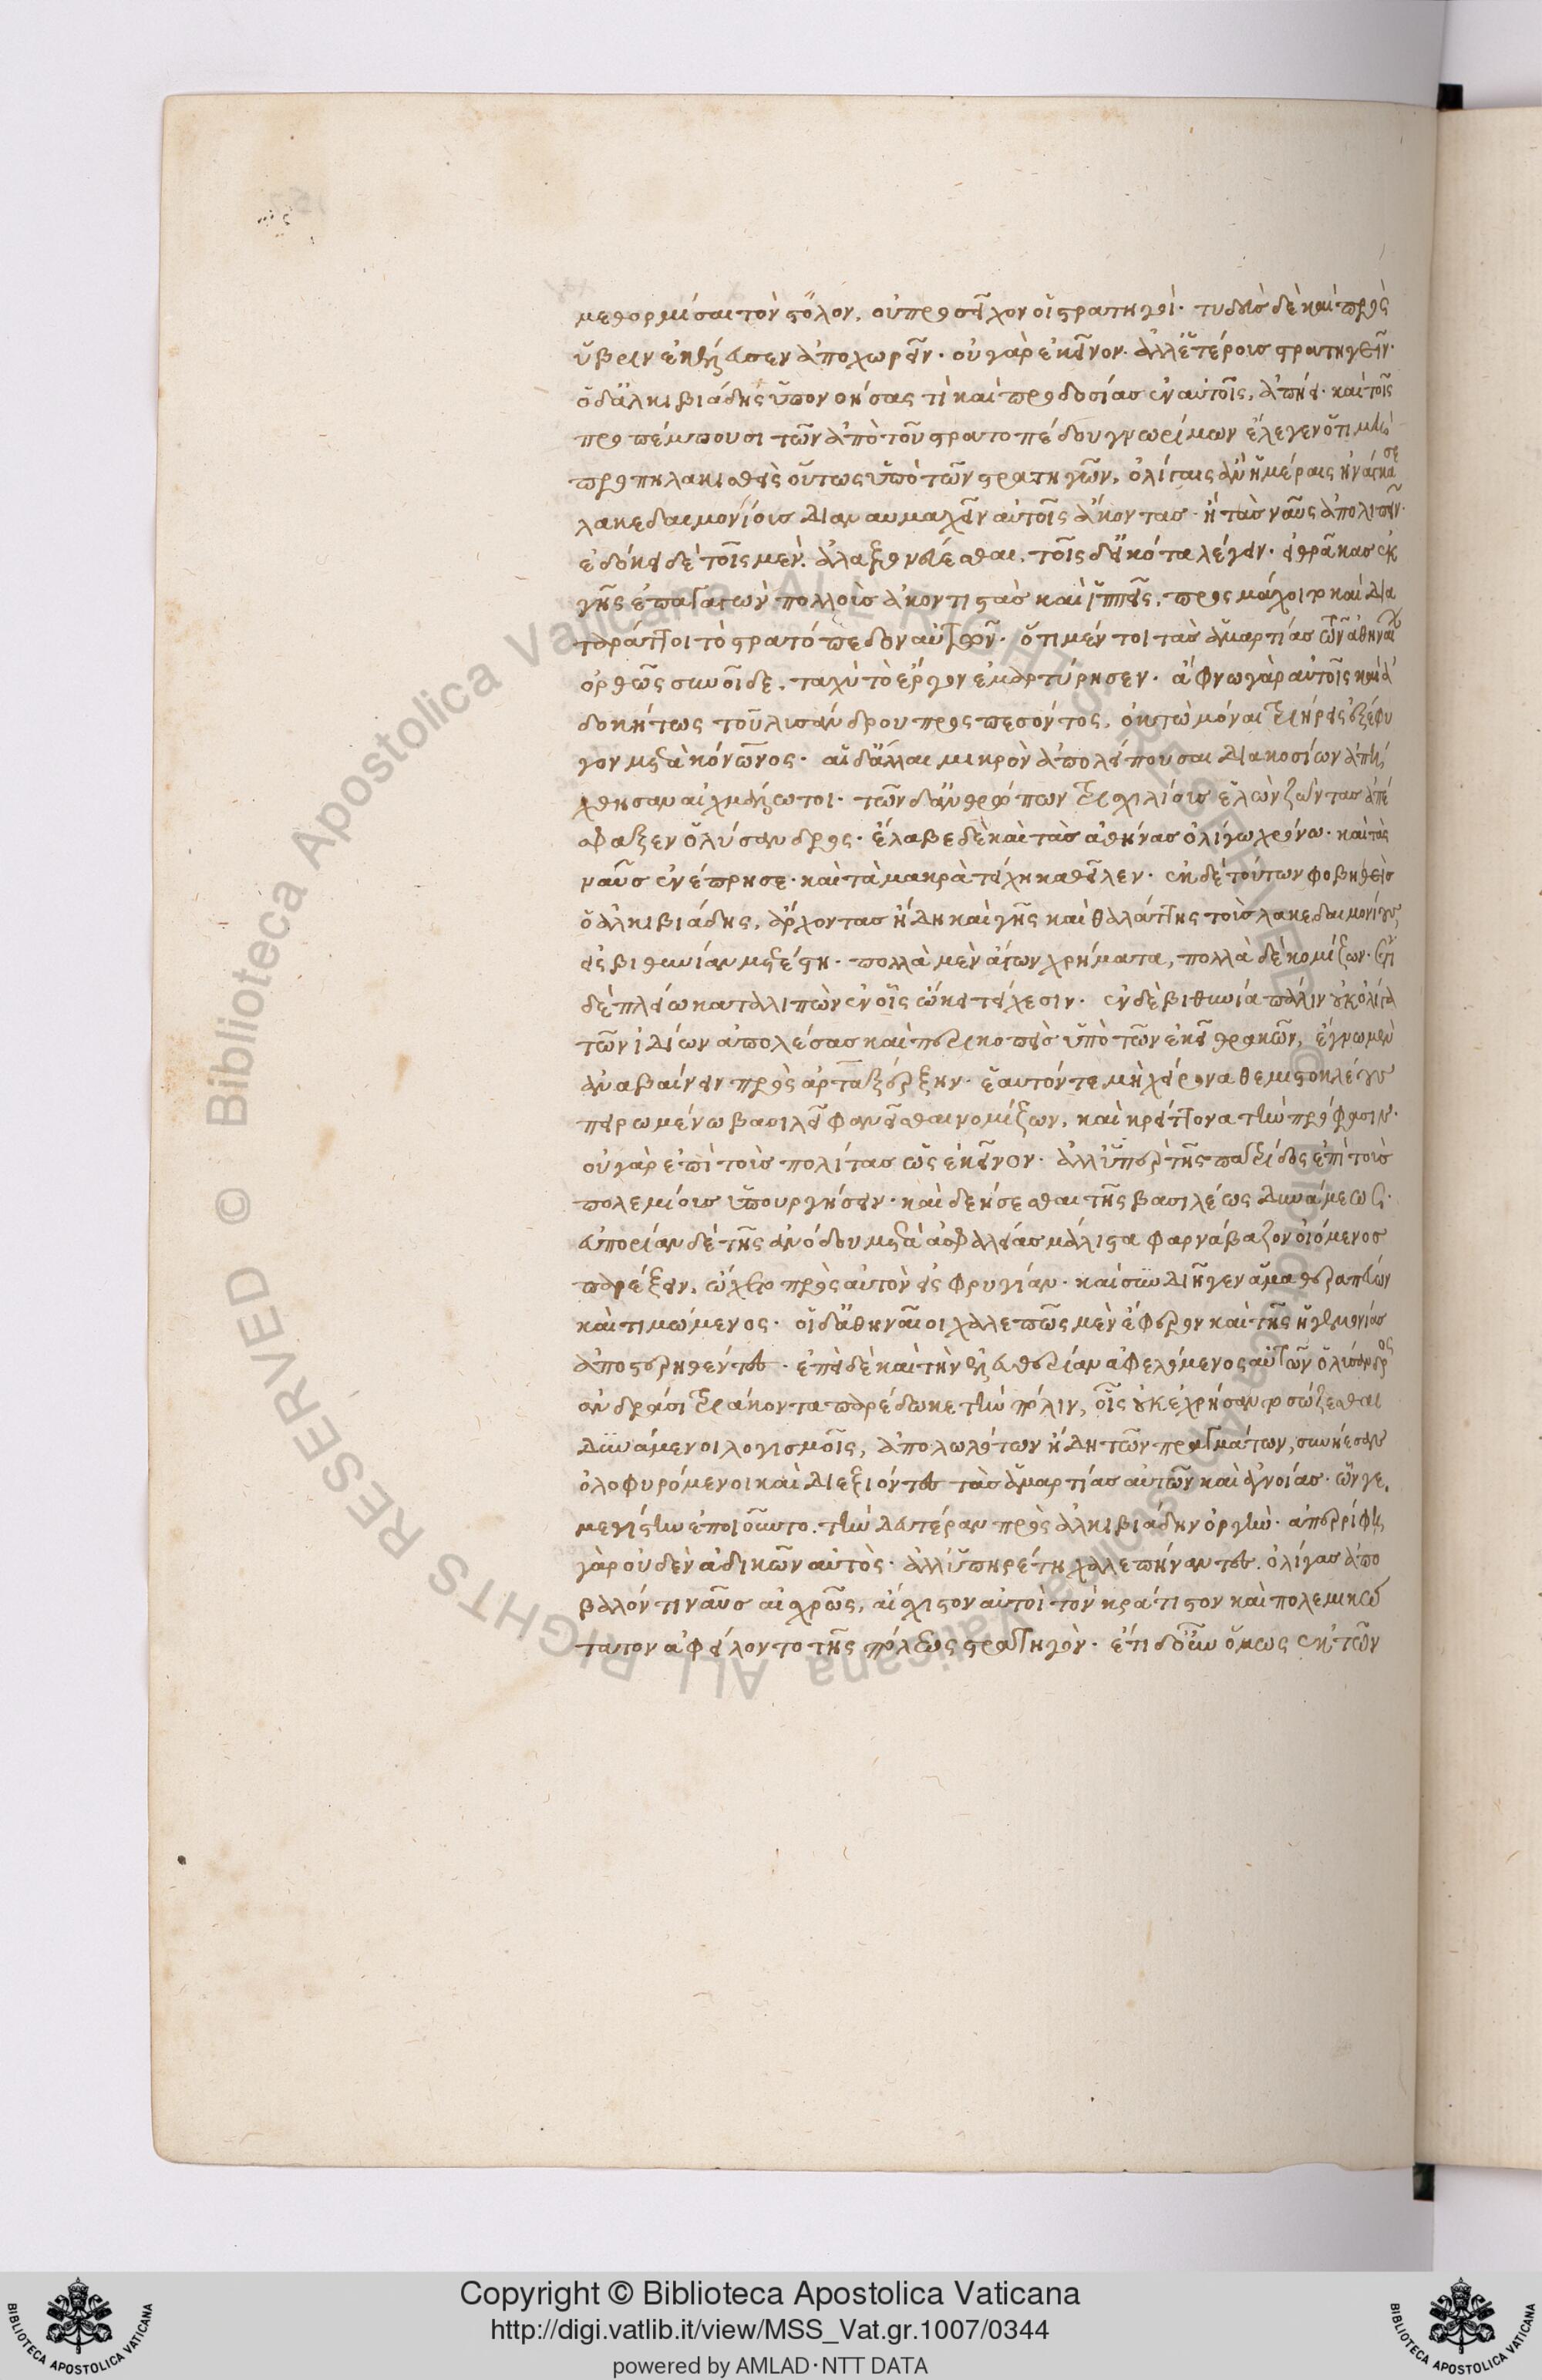 μεθορμίσαι τὸν στόλον, οὐ προσεῖχον οἱ στρατηγοί· τυδεὺς δὲ καὶ πρὸς
ὕβριν ἐκέλευσεν ἀποχωρεῖν· οὐ γὰρ ἐκεῖνον· ἀλλ' ἑτέροις στρατηγεῖν·
ὁ δ' ἀλκιβιάδης ὑπονοήσας τὶ καὶ προδοσίας ἐν αὐτοῖς, ἀπῄει· καὶ τοῖς
προπέμπουσι τῶν ἀπὸ τοῦ στρατοπέδου γνωρίμων ἔλεγεν ὅτι μὴ
προπηλακισθεὶς οὕτως ὑπὸ τῶν στρατηγῶν, ὀλίγαις ἂν ἡμέραις ἠνάγκασε
λακεδαιμονίοις διαναυμαχεῖν αὐτοῖς ἄκοντας· ἢ τὰς ναῦς ἀπολιπεῖν·
ἐδόκει δὲ τοῖς μὲν ἀλαζονεύεσθαι, τοῖς δ' εἰκότα λέγειν· εἰ θρᾷκας ἐκ
γῆς ἐπαγαγὼν πολλοὺς ἀκοντιστὰς καὶ ἱππεῖς, προσμάχοιτο καὶ δια
ταράττοι τὸ στρατόπεδον αὐτῶν· ὅτι μέν τοι τὰς ἁμαρτίας τῶν ἀθηναίων
ὀρθῶς συνοῖδε, ταχὺ τὸ ἔργον ἐμαρτύρησεν· ἄφνω γὰρ αὐτοῖς καὶ ἀ
δοκήτως τοῦ λισάνδρου προσπεσόντος, ὀκτὼ μόναι τριήρεις ἐξέφυ
γον μετὰ κόνωνος· αἱ δ' ἄλλαι μικρὸν ἀπολείπουσαι διακοσίων ἀπή
χθησαν αἰχμάλωτοι· τῶν δ' ἀνθρώπων τρισχιλίους ἑλὼν ζῶντας ἀπέ
σφαξεν ὁ λύσανδρος· ἔλαβε δὲ καὶ τὰς ἀθήνας ὀλίγω χρόνω· καὶ τὰς
ναῦς ἐνέπρησε· καὶ τὰ μακρὰ τείχη καθεῖλεν· ἐκ δὲ τούτων φοβηθεὶς
ὁ ἀλκιβιάδης, ἄρχοντας ἤδη καὶ γῆς καὶ θαλάττης τοὺς λακεδαιμονίους
εἰς βιθυνίαν μετέστη· πολλὰ μὲν ἄγων χρήματα, πολλὰ δὲ κομίζων· ἔτι
δὲ πλείω καταλιπὼν ἐν οἷς ᾤκει τείχεσιν· ἐν δὲ βιθυνία πάλιν οὐκ ὀλίγα
τῶν ἰδίων ἀπολέσας καὶ περικοπεὶς ὑπὸ τῶν ἐκεῖ θρακῶν, ἔγνω μὲν
ἀναβαίνειν πρὸς ἀρταξέρξην· ἑαυτόν τε μὴ χείρονα θεμιστοκλέους
πειρωμένω βασιλεῖ φανεῖσθαι νομίζων, καὶ κρείττονα τὴν πρόφασιν·
οὐ γὰρ ἐπὶ τοὺς πολίτας ὡς ἐκεῖνον· ἀλλ' ὑπὲρ τῆς πατρίδος ἐπὶ τοὺς
πολεμίους ὑπουργήσειν· καὶ δεήσεσθαι τῆς βασιλέως δυνάμεως·
εὐπορίαν δὲ τῆς ἀνόδου μετὰ ἀσφαλείας μάλιστα φαρνάβαζον οἰόμενος
παρέξειν, ᾤχετο πρὸς αὐτὸν εἰς φρυγίαν· καὶ συνδιῆγεν ἅμα θεραπεύων
καὶ τιμώμενος· οἱ δ' ἀθηναῖοι χαλεπῶς μὲν ἔφερον καὶ τῆς ἡγεμονίας
ἀποστερηθέντες· ἐπεὶ δὲ καὶ τὴν ἐλευθερίαν ἀφελόμενος αὐτῶν ὁ λύσανδρος
ἀνδράσι τριάκοντα παρέδωκε τὴν πόλιν, οἷς οὐκ ἐχρήσαντο σώζεσθαι
δυνάμενοι λογισμοῖς, ἀπολωλότων ἤδη τῶν πραγμάτων, συνίεσαν
ὀλοφυρόμενοι καὶ διεξιόντες τὰς ἁμαρτίας αὐτῶν καὶ ἀγνοίας· ὧν γε
μεγίστην ἐποιοῦντο τὴν δευτέραν πρὸς ἀλκιβιάδην ὀργήν· ἀπερρίφη
γὰρ οὐδὲν ἀδικῶν αὐτὸς· ἀλλ' ὑπηρέτη χαλεπήναντες ὀλίγας ἀπο
βαλόντι ναῦς αἰσχρῶς, αἴσχιστον αὐτοὶ τὸν κράτιστον καὶ πολεμικώ
τατον ἀφείλοντο τῆς πόλεως στρατηγὸν· ἔτι δ' οὖν ὅμως ἐκ τῶν
Copyright © Biblioteca Apostolica Vaticana
http://digi.vatlib.it/view/MSS_Vat.gr.1007/0344
powered by AMLAD·NTT DATA
BIBLIOTECA APOSTOLICA VATICANA
BIBLIOTECA APOSTOLICA VATICANA
© Biblioteca Apostolica Vaticana ALL RIGHTS RESERVED
© Biblioteca Apostolica Vaticana ALL RIGHTS RESERVED